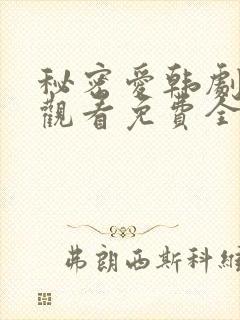 秘密愛韩劇
觀看免費全
弗朗西斯科維